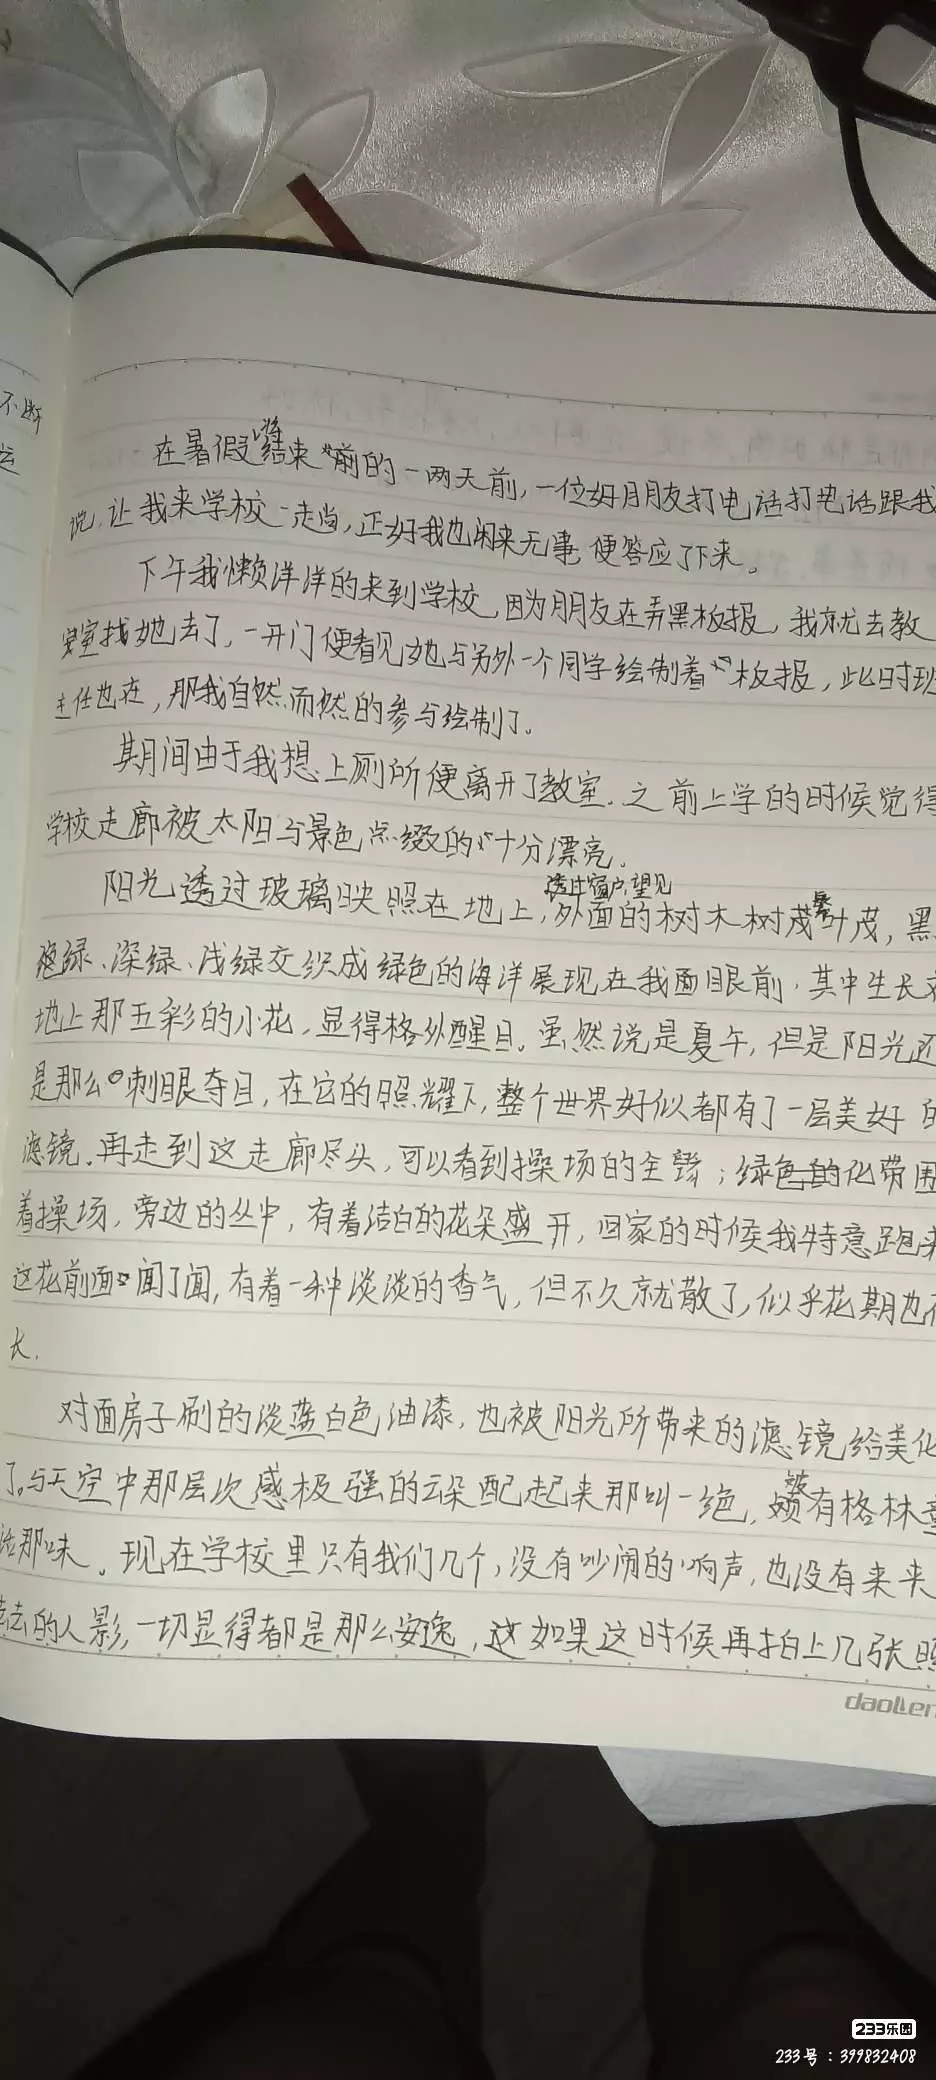 不断
在暑假将结束前的一两天前,一位好朋友打电话打电话跟我
说,让我来学校一走尚,正好我也闲来无事,便答应了下来。
下午我懒洋洋的来到学校,因为朋友在弄黑板报,我就去教
室找她去了,一开门便看见她与另外一个同学绘制着板报,此时班
主任也在,那我自然而然的参与绘制了。
期间由于我想上厕所便离开了教室.之前上学的时候觉得
学校走廊被太阳与景色点缀的十分漂亮.
阳光透过玻璃映照在地上,透过窗户望见外面的树木树茂繁叶茂,黑
绿、深绿、浅绿交织成绿色的海洋展现在我面眼前.其中生长在
地上那五彩的小花,显得格外醒目。虽然说是夏午,但是阳光还
是那么刺眼夺目,在它的照耀下,整个世界好似都有了一层美好的
滤镜.再走到这走廊尽头,可以看到操场的全貌;绿色的化带围
着操场,旁边的丛中,有着洁白的花朵盛开,回家的时候我特意跑来
这花前面闻了闻,有着一种淡淡的香气,但不久就散了,似乎花期也不
长.
对面房子刷的淡蓝白色油漆,也被阳光所带来的滤镜给美化
了。与天空中那层次感极强的云朵配起来那叫一绝,颇有格林童
话那味。现在学校里只有我们几个,没有吵闹的响声,也没有来来
去去的人影,一切显得都是那么安逸,这如果这时候再拍上几张照
daolen
233乐园
233号:399832408